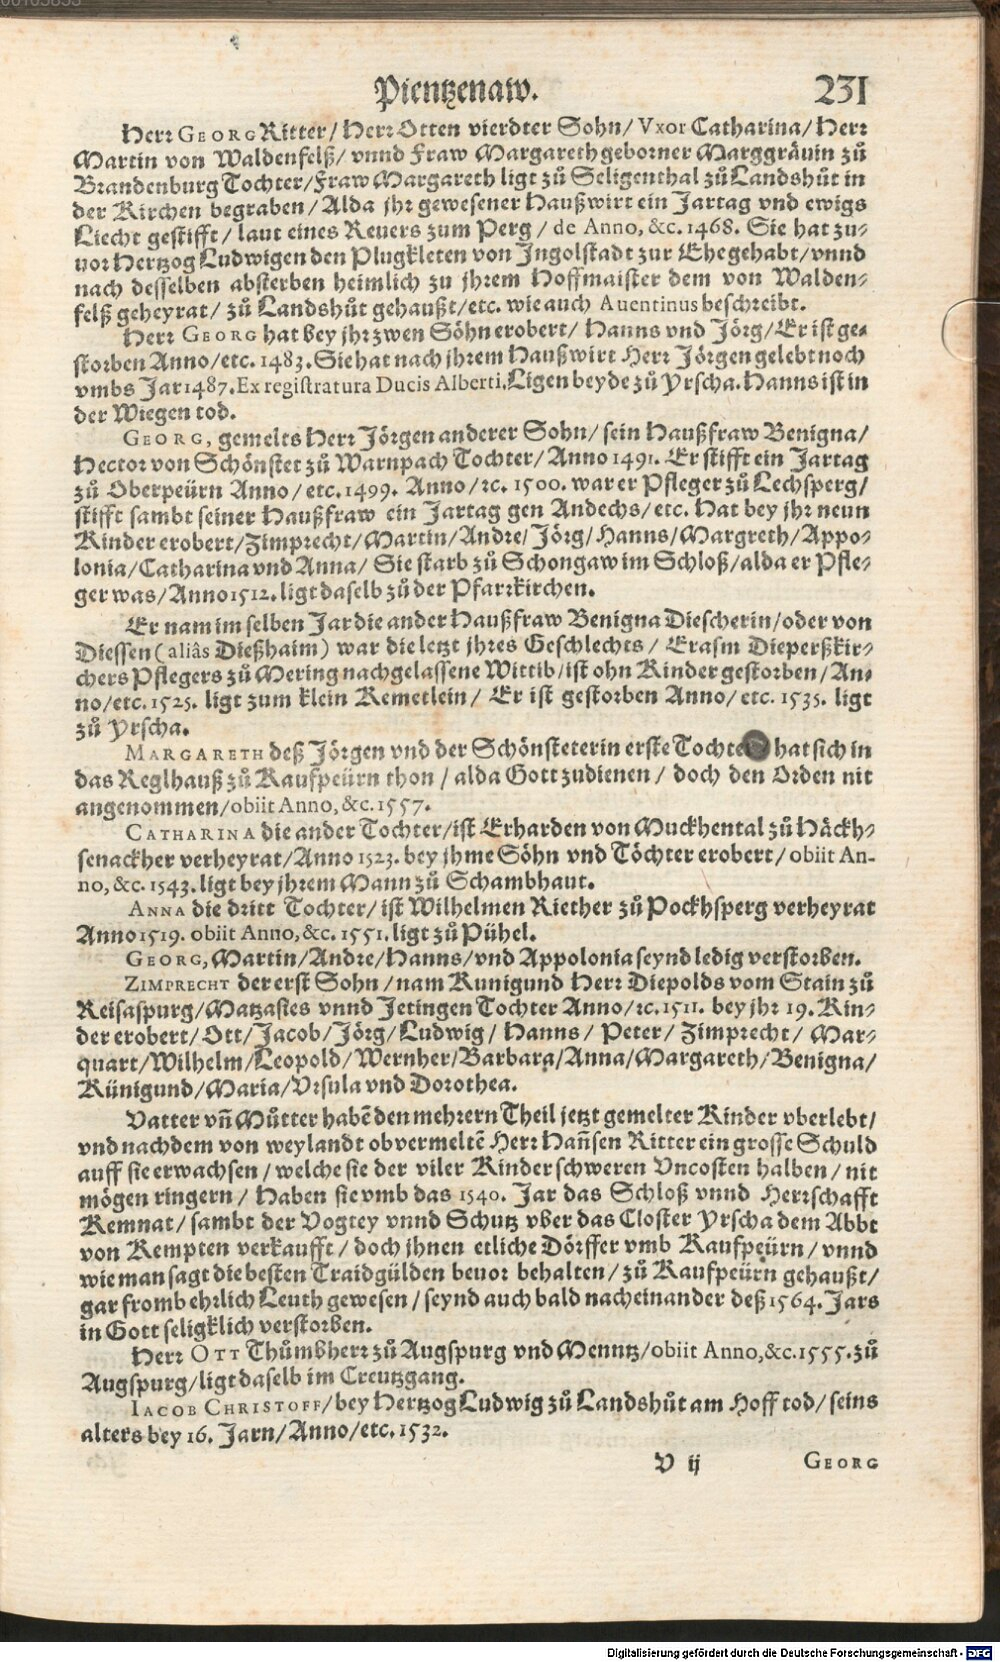 Pientzenaw. 231
Herr GEORG Ritter/ Herr Otten vierdter Sohn/ Vxor Catharina/ Herr
Martin von Waldenfelß/ vnnd Fraw Margareth geborner Marggräuin zů
Brandenburg Tochter/ Fraw Margareth ligt zů Seligenthal zů Landshůt in
der Kirchen begraben/ Alda jhr gewesener Haußwirt ein Jartag vnd ewigs
Liecht gestifft/ laut eines Reuers zum Perg/ de Anno, &c. 1468. Sie hat zu-
uor Hertzog Ludwigen den Plugkleten von Ingolstadt zur Ehe gehabt/ vnnd
nach desselben absterben heimlich zu jhrem Hoffmaister dem von Walden-
felß geheyrat/ zů Landshůt gehaußt/ etc. wie auch Auentinus beschreibt.
Herr GEORG hat bey jhr zwen Söhn erobert/ Hanns vnd Jörg/ Er ist ge-
storben Anno/ etc. 1483. Sie hat nach jhrem Haußwirt Herr Jörgen gelebt noch
vmbs Jar 1487. Ex registratura Ducis Alberti, Ligen beyde zů Yrscha. Hanns ist in
der Wiegen tod.
GEORG, gemelts Herr Jörgen anderer Sohn/ sein Haußfraw Benigna/
Hector von Schönstet zů Warnpach Tochter/ Anno 1491. Er stifft ein Jartag
zů Oberpeürn Anno/ etc. 1499. Anno/ ꝛc. 1500. war er Pfleger zů Lechsperg/
stifft sambt seiner Haußfraw ein Jartag gen Andechs/ etc. Hat bey jhr neun
Kinder erobert/ Zimprecht/ Martin/ Andre/ Jörg/ Hanns/ Margreth/ Appo-
lonia/ Catharina vnd Anna/ Sie starb zů Schongaw im Schloß/ alda er Pfle-
ger was/ Anno 1512. ligt daselb zů der Pfarrkirchen.
Er nam im selben Jar die ander Haußfraw Benigna Diescherin/ oder von
Diessen (aliâs Dießhaim) war die letzt jhres Geschlechts/ Erasm Dieperßkir-
chers Pflegers zů Mering nachgelassene Wittib/ ist ohn Kinder gestorben/ An-
no/ etc. 1525. ligt zum klein Kemetlein/ Er ist gestorben Anno/ etc. 1535. ligt
zů Yrscha.
MARGARETH deß Jörgen vnd der Schönsteterin erste Tochter hat sich in
das Reglhauß zů Kaufpeürn thon/ alda Gott zudienen/ doch den Orden nit
angenommen/ obiit Anno, &c. 1557.
CATHARINA die ander Tochter/ ist Erharden von Muckhental zů Häckh-
senackher verheyrat/ Anno 1523. bey jhme Söhn vnd Töchter erobert/ obiit An-
no, &c. 1543. ligt bey jhrem Mann zů Schambhaut.
ANNA die dritt Tochter/ ist Wilhelmen Riether zů Pockhsperg verheyrat
Anno 1519. obiit Anno, &c. 1551. ligt zů Pühel.
GEORG, Martin/ Andre/ Hanns/ vnd Appolonia seynd ledig verstorben.
ZIMPRECHT der erst Sohn/ nam Kunigund Herr Diepolds vom Stain zů
Reisaspurg/ Matzastes vnnd Jetingen Tochter Anno/ ꝛc. 1511. bey jhr 19. Kin-
der erobert/ Ott/ Jacob/ Jörg/ Ludwig/ Hanns/ Peter/ Zimprecht/ Mar-
quart/ Wilhelm/ Leopold/ Wernher/ Barbara/ Anna/ Margareth/ Benigna/
Künigund/ Maria/ Vrsula vnd Dorothea.
Vatter vñ Můtter habẽ den mehrern Theil jetzt gemelter Kinder vberlebt/
vnd nachdem von weylandt obvermeltẽ Herr Hañsen Ritter ein grosse Schuld
auff sie erwachsen/ welche sie der viler Kinder schweren Vncosten halben/ nit
mögen ringern/ Haben sie vmb das 1540. Jar das Schloß vnnd Herrschafft
Kemnat/ sambt der Vogtey vnnd Schutz vber das Closter Yrscha dem Abbt
von Kempten verkaufft/ doch jhnen etliche Dörffer vmb Kaufpeürn/ vnnd
wie man sagt die besten Traidgülden beuor behalten/ zů Kaufpeürn gehaußt/
gar fromb ehrlich Leuth gewesen/ seynd auch bald nacheinander deß 1564. Jars
in Gott seligklich verstorben.
Herr OTT Thůmbherr zů Augspurg vnd Menntz/ obiit Anno, &c. 1555. zů
Augspurg/ ligt daselb im Creutzgang.
IACOB CHRISTOFF/ bey Hertzog Ludwig zů Landshůt am Hoff tod/ seins
alters bey 16. Jarn/ Anno/ etc. 1532.
V ij GEORG
Digitalisierung gefördert durch die Deutsche Forschungsgemeinschaft - DFG